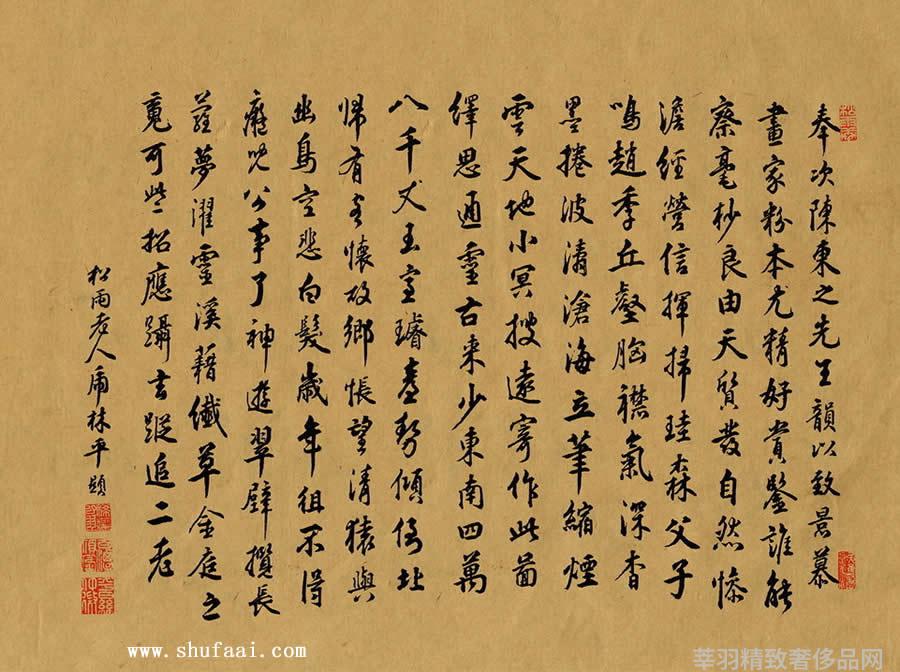 奉次陳東之先生韻以致景慕
畫家粉本尤精好賞鑒誰能
察毫杪良由天質發自然慘
澹經營信揮掃珪森父子
鳴趙季丘壑胸襟氣深杳
墨捲波濤滄海立筆縮煙
雲天地小冥搜遠寄作此圖
繹思通靈古來少東南四萬
八千丈玉室璿臺勢傾倚北
歸有客懷故鄉悵望清猿與
幽鳥空悲白髮歲年徂不得
癡兒公事了神遊翠壁攬長
蘿夢濯靈溪藉纖草金庭之
竟可些招應躡玄蹤追二老
松雨老人 林平題
www.shufaai.com
莘羽精致奢侈品网